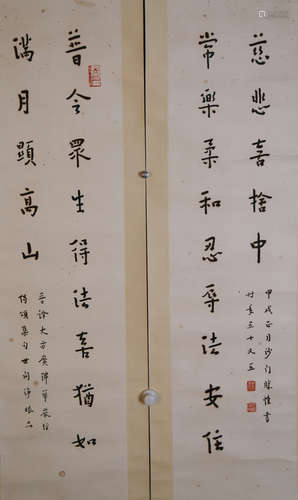 常樂柔和忍辱法安住
慈悲喜捨中
甲戌正月沙門書
時年五十又五
普令眾生得法喜猶如
滿月顯高山
晉譯大方廣佛華嚴經
偈頌集句世間淨眼品